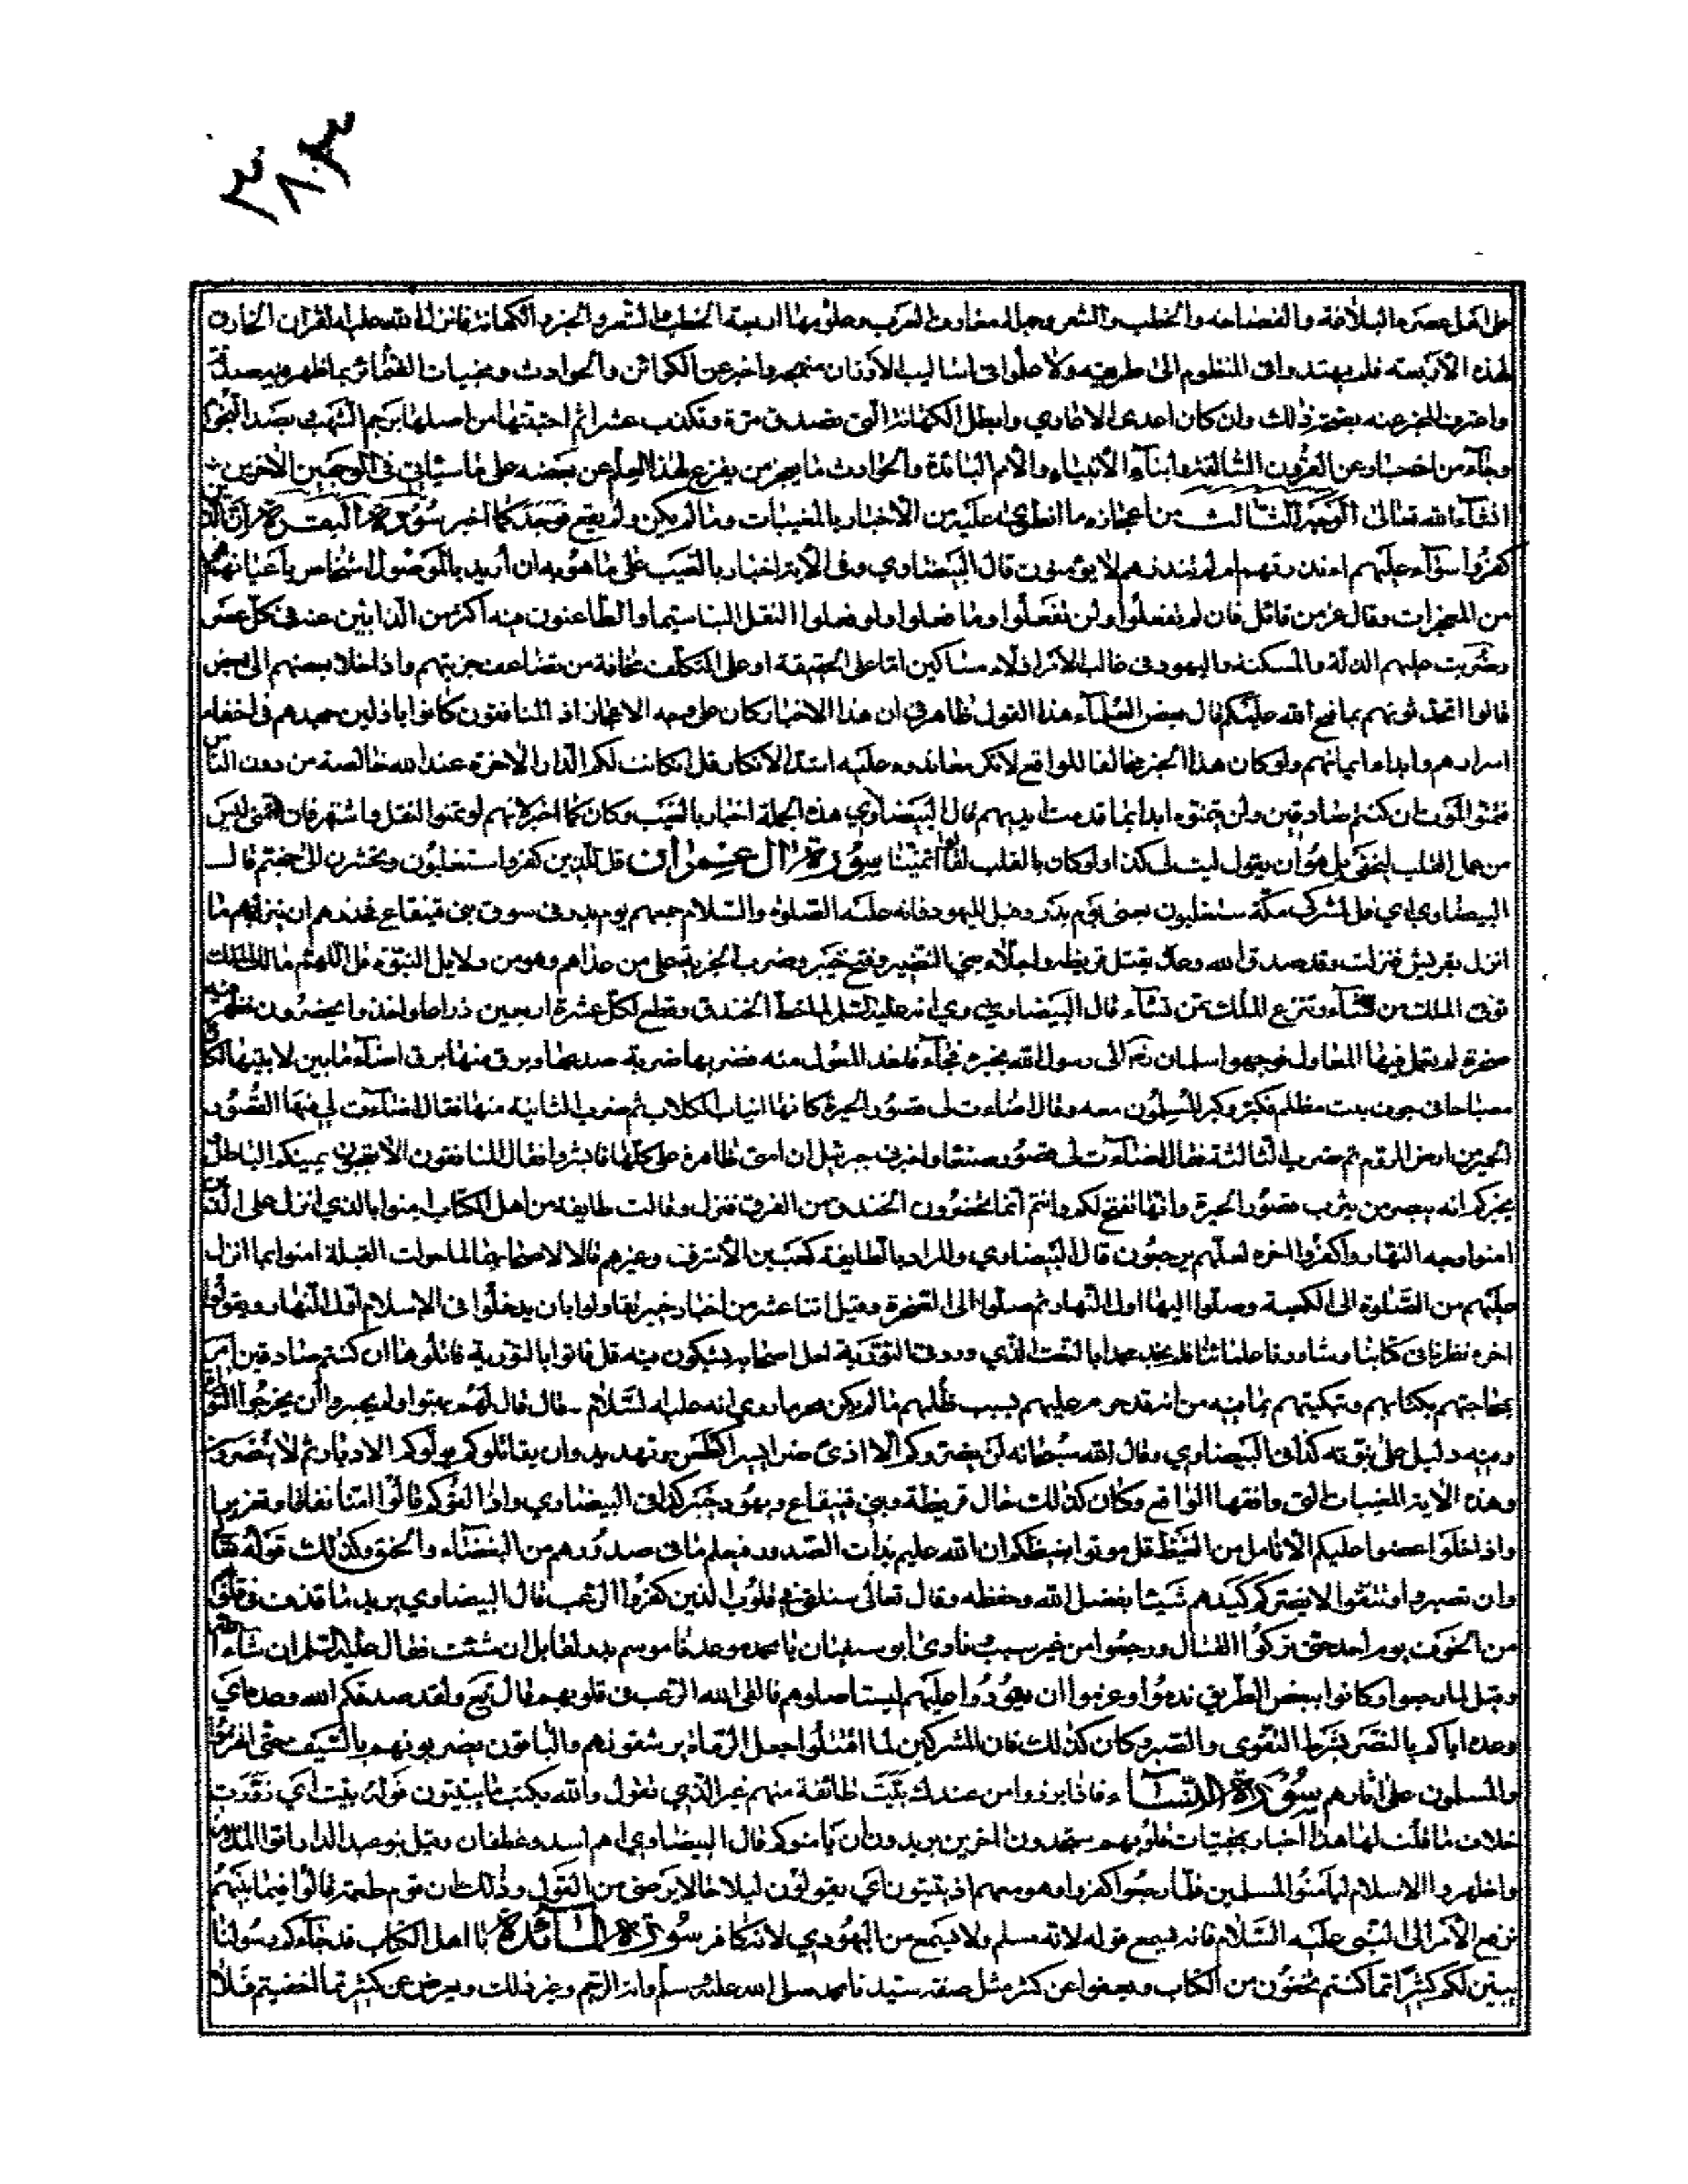 ٣٨٠٣
على اهل عصره البلاغة والفصاحة والخطب والشعر وجل معارف العرب وعلومها اربعة الخطب والشعر والخبر والكهانة فانزل الله عليه القران الخارق
لهذه الاربعة فلم يهتدوا فى المنظوم الى طريقه ولا علوا فى اساليب الاوزان منهجه واخبر عن الكوائن والحوادث ومخبيات الضمائر بما ظهر وبصدق
واعترف المخبر عنه بصحة ذلك وان كان اعدى الاعادي وابطل الكهانة التى تصدق مرة وتكذب عشرا ثم اجتثها من اصلها برجم الشهب
وجاء من اخباره عن القرون السالفة وانباء الانبياء والامم البائدة والحوادث ما يعجز من يفزع لهذا العلم عن بعضه على ما سياتى فى الوجهين الاخرين
انشاء الله تعالى الوجه الثالث من اعجازه ما انطوى عليه من الاخبار بالمغيبات وما لم يكن ولم يقع فوجد كما اخبر سورة البقرة ان الذين
كفروا سواء عليهم ءانذرتهم ام لم تنذرهم لا يؤمنون قال البيضاوي وفى الاية اخبار بالغيب على ما هو به ان اريد بالموصول اشخاص باعيانهم
من المعجزات وقال عز من قائل فان لم تفعلوا ولن تفعلوا وما فعلوا ولو فعلوا النقل الينا سيما والطاعنون فيه اكثر من الذابين عنه فى كل عصر
وضربت عليهم الذلة والمسكنة واليهود فى غالب الامر اذلاء مساكين اما على الحقيقة او على التكلف مخافة من تضاعف جزيتهم واذا خلا بعضهم الى بعض
قالوا اتحدثونهم بما فتح الله عليكم قال بعض العلماء هذا القول ظاهر فى ان هذا الاخبار كان على وجه الاعجاز اذ المنافقون كانوا باذلين جهدهم فى اخفاء
اسرارهم وابداء ايمانهم ولو كان هذا الخبر مخالفا للواقع لانكر معاندوه عليه اشد الانكار قل ان كانت لكم الدار الاخرة عند الله خالصة من دون الناس
فتمنوا الموت ان كنتم صادقين ولن يتمنوه ابدا بما قدمت ايديهم قال البيضاوي هذه الجملة اخبار بالغيب وكان كما اخبر لانهم لو تمنوا لنقل واشتهر فان التمنى ليس
من عمل القلب ليخفى بل هو ان يقول ليت لى كذا ولو كان بالقلب لقالوا تمنينا سورة ال عمران قل للذين كفروا ستغلبون وتحشرون الى جهنم قال
البيضاوي اي قل لمشركى مكة ستغلبون يعنى يوم بدر وقيل لليهود فانه عليه الصلوة والسلام جمعهم يوم بدر فى سوق بنى قينقاع فحذرهم ان ينزل بهم ما
انزل بقريش فنزلت وقد صدق الله وعده بقتل قريظة واجلاء بنى النضير وفتح خيبر وضرب الجزية على من عداهم وهو من دلايل النبوة قل اللهم مالك الملك
توتى الملك من تشاء وتنزع الملك ممن تشاء قال البيضاوي روي انه عليه السلم لما خط الخندق وقطع لكل عشرة اربعين ذراعا واخذوا يحضرون فظهر فيه
صخرة لم يعمل فيها المعاول فوجهوا سلمان الى رسول الله يخبره فجاء فاخذ المعول منه فضربها ضربة صدعها وبرق منها برق اضاء ما بين لابتيها لكان
مصباحا فى جوف بيت مظلم فكبر وكبر المسلمون معه وقال اضاءت لى قصور الحيرة كانها انياب الكلاب ثم ضرب الثانية منها فقال اضاءت لى منها القصور
الحمر من ارض الروم ثم ضرب الثالثة فقال اضاءت لى قصور صنعا واخبرنى جبرئيل ان امتى ظاهرة على كلها فابشروا فقال المنافقون الا تعجبون يمنيكم الباطل
يخبركم انه يبصر من يثرب قصور الحيرة وانها تفتح لكم وانتم انما تحضرون الخندق من الفرق فنزل وقالت طايفة من اهل الكتاب امنوا بالذي انزل على الذين
امنوا وجه النهار واكفروا اخره لعلهم يرجعون قال البيضاوي والمراد بالطايفة كعب بن الاشرف وغيرهم قالا لاصحابهما لما حولت القبلة امنوا بما انزل
عليهم من الصلوة الى الكعبة وصلوا اليها اول النهار ثم صلوا الى الصخرة وقيل اثنا عشر من احبار خيبر تقاولوا بان يدخلوا فى الاسلام اول النهار ويقولوا
اخره نظرنا فى كتابنا وشاورنا علمائنا فلم نجد محمدا بالنعت الذي ورد فى التورية لعل اصحابه يشكون فيه قل فاتوا بالتورية فاتلوها ان كنتم صادقين امر
بمحاجتهم بكتابهم وتبكيتهم بما فيه من انه قد حرم عليهم بسبب ظلمهم ما لم يكن محرما روي انه عليه السلام قال لهم بهتوا ولم يجسروا ان يخرجوا التورية
وفيه دليل على نبوته كذا فى البيضاوي وقال الله سبحانه لن يضروكم الا اذى ضررا يسيرا كطعن وتهديد وان يقاتلوكم يولوكم الادبار ثم لا ينصرون
وهذه الاية المغيبات التى وافقها الواقع وكان كذلك حال قريظة وبنى قينقاع ويهود خيبر كذا فى البيضاوي واذا لقوكم قالوا امنا نفاقا وتغريرا
واذا خلوا عضوا عليكم الانامل من الغيظ قل موتوا بغيظكم ان الله عليم بذات الصدور فيعلم ما فى صدورهم من البغضاء والحنق وكذلك قوله تعالى
وان تصبروا وتتقوا لا يضركم كيدهم شيئا بفضل الله وحفظه وقال تعالى سنلقى فى قلوب الذين كفروا الرعب قال البيضاوي يريد ما قذف فى قلوبهم
من الخوف يوم احد حتى تركوا القتال ورجعوا من غير سبب فنادى ابو سفيان يا محمد موعدنا موسم بدر لقابل ان شئت فقال عليه السلم ان شاء الله
وقيل لما رجعوا وكانوا ببعض الطريق ندموا وعزموا ان يعودوا عليهم ليستاصلوهم فالقى الله الرعب فى قلوبهم قال تع ولقد صدقكم الله وعده اي
وعده اياكم بالنصر بشرط التقوى والصبر وكان كذلك فان المشركين لما اقتتلوا جعل الرماة يرشقونهم والباقون يضربونهم بالسيف حتى انهزموا
والمسلمون على اثارهم سورة النساء فاذا برزوا من عندك بيت طائفة منهم غير الذي تقول والله يكتب ما يبيتون قوله بيت اي زورت
خلاف ما قلت لها هذا اخبار بخفيات قلوبهم ستجدون اخرين يريدون ان يامنوكم قال البيضاوي هم اسد وغطفان وقيل بنو عبد الدار اتوا المدينة
واظهروا الاسلام ليامنوا المسلمين فلما رجعوا كفروا وهو معهم اذ يبيتون اي يقولون ليلا ما لا يرضى من القول وذلك ان قوم طعمة قالوا فيما بينهم
نرفع الامر الى النبى عليه السلام فانه يسمع قوله لانه مسلم ولا يسمع من اليهودي لانه كافر سورة المائدة يا اهل الكتاب قد جاءكم رسولنا
يبين لكم كثيرا مما كنتم تخفون من الكتاب ويعفوا عن كثير مثل صفة سيدنا محمد صلى الله عليه وسلم واية الرجم وغير ذلك ويعرض عن كثير مما اخفيتم فلا